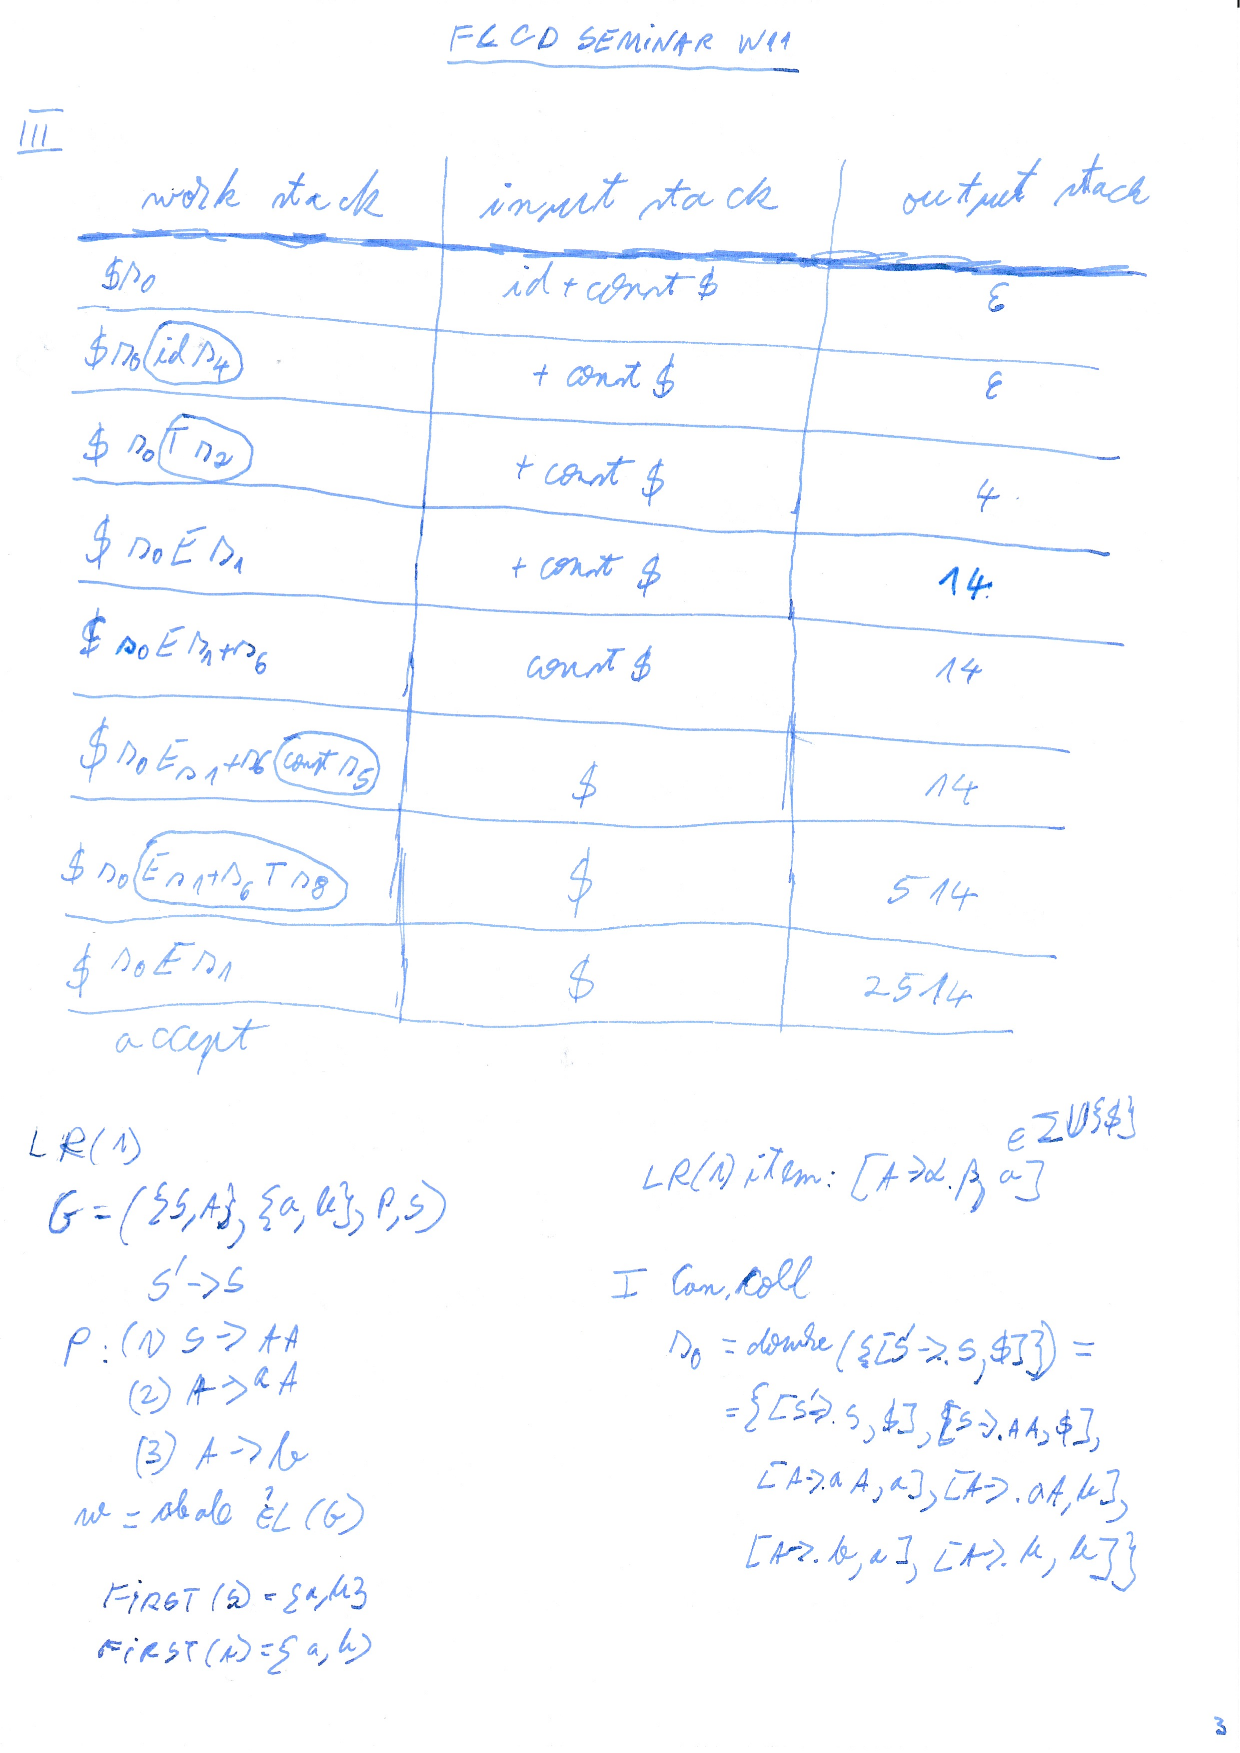 FLCD SEMINAR W11
III
work stack input stack output stack
$s0 id + const $ ε
$s0 id s4 + const $ ε
$ s0 T s2 + const $ 4
$ s0 E s1 + const $ 14
$ s0 E s1 + s6 const $ 14
$ s0 E s1 + s6 const s5 $ 14
$ s0 E s1 + s6 T s8 $ 514
$ s0 E s1 $ 2514
accept
LR(1)
G = ({S,A}, {a,b}, P, S)
S' -> S
P: (1) S -> AA
(2) A -> aA
(3) A -> b
w = abab ?∈ L(G)
FIRST(S) = {a,b}
FIRST(A) = {a,b}
∈ Σ ∪ {$}
LR(1) item: [A -> α.β, a]
I Can. coll
s0 = closure({[S' -> .S, $]}) =
= {[S' -> .S, $], [S -> .AA, $],
[A -> .aA, a], [A -> .aA, b],
[A -> .b, a], [A -> .b, b]}
3